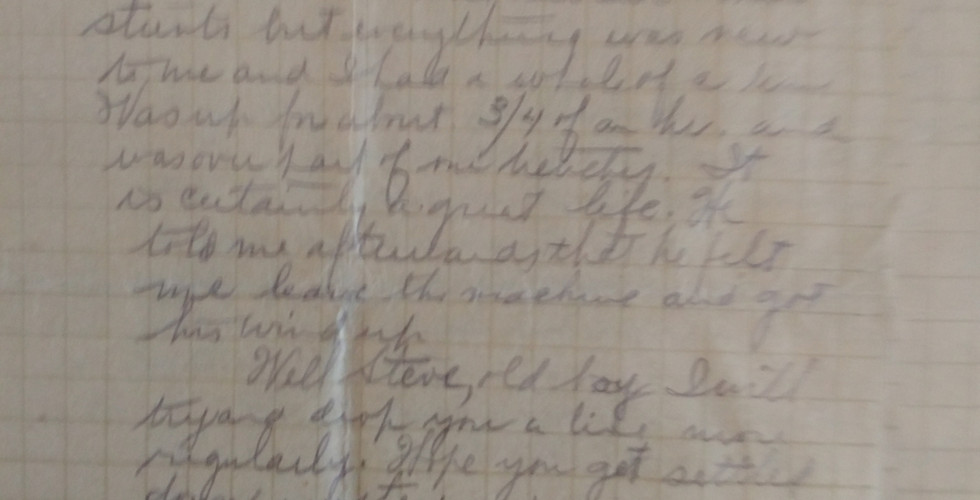 stunts but everything was new
to me and I had a whole of a time
Was up for about 3/4 of an hr. and
was over part of
is certainly a great life. He
told me afterwards that he felt
me leave the machine and got
his wind up
Well Steve, old boy I will
try and drop you a line more
regularly. Hope you get settled